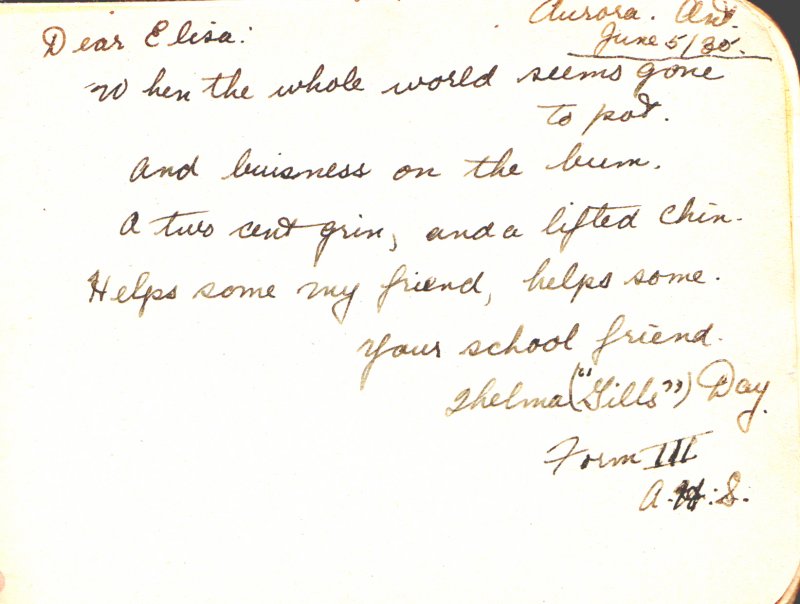 Aurora. Ont.
June 5/30.
Dear Elisa:
When the whole world seems gone
to pot.
And buisness on the bum.
A two cent grin, and a lifted chin.
Helps some my friend, helps some.
Your school friend.
Thelma ("Gills") Day.
Form III
A.H.S.